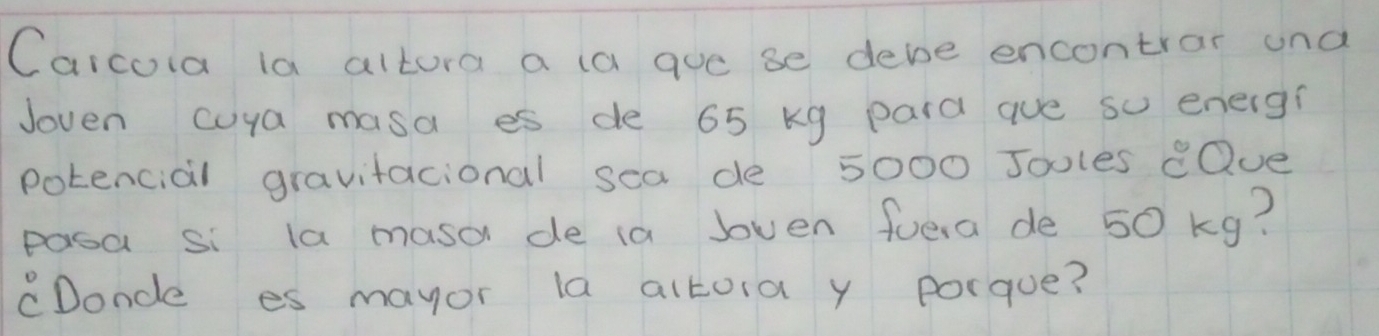 Calcula la altura a la que se debe encontrar una
Joven cuya masa es de 65 kg para que su energi
potencial gravitacional sea de 5000 Joules ¿Que
pasa si la masa de la Joven fuera de 50 kg?
¿Donde es mayor la altura y porque?